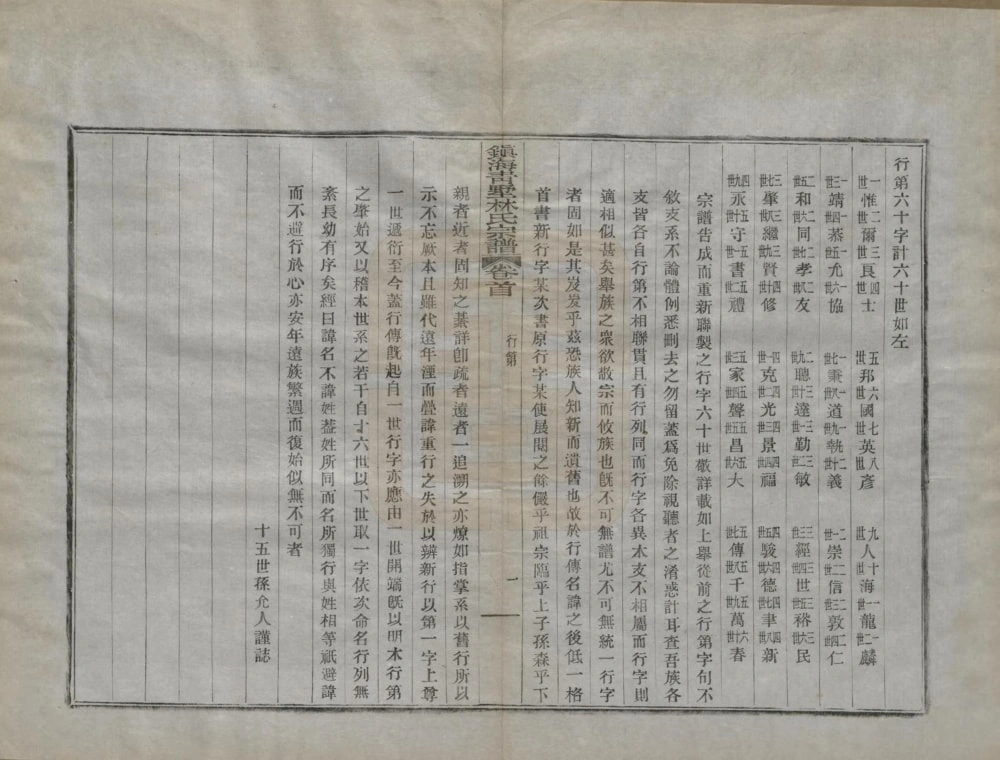 行第六十字計六十世如左
一世惟二世爾三世良四世士 五世邦六世國七世英八世彥 九世人十世海一世龍二世麟
三世靖四世恭五世允六世協 七世秉八世道九世執十世義 一世崇二世信三世敦四世仁
五世和六世同七世孝八世友 九世聰十世達一世勤二世敏 三世經四世世五世裕六世民
七世肇八世繼九世賢十世修 一世克二世光三世景四世福 五世駿六世德七世聿八世新
九世永十世守一世書二世禮 三世家四世聲五世昌六世大 七世傳八世千九世萬十世春
宗譜告成而重新聯製之行字六十世敬詳載如上舉從前之行第字句不
敘支系不論體例悉刪去之勿留蓋爲免除視聽者之淆惑計耳查吾族各
支皆各自行第不相聯貫且有行列同而行字各異木支不相屬而行字則
適相似甚矣舉族之衆欲敬宗而收族也旣不可無譜尤不可無統一行字
者固如是其岌岌乎茲恐族人知新而遺舊也故於行傳名諱之後低一格
首書新行字某次書原行字某使展閱之餘儼乎祖宗臨乎上子孫森乎下
鎭海青墅林氏宗譜 卷首 行第 一
親者近者固知之綦詳卽疏者遠者一追溯之亦燎如指掌系以舊行所以
示不忘厥本且雖代遠年湮而疊諱重行之失於以辨新行以第一字上尊
一世遞衍至今蓋行傳旣起自一世行字亦應由一世開端旣以明木行第
之肇始又以稽本世系之若干自十六世以下世取一字依次命名行列無
紊長幼有序矣經曰諱名不諱姓蓋姓所同而名所獨行與姓相等祇避諱
而不避行於心亦安年遠族繁週而復始似無不可者
十五世孫允人謹誌